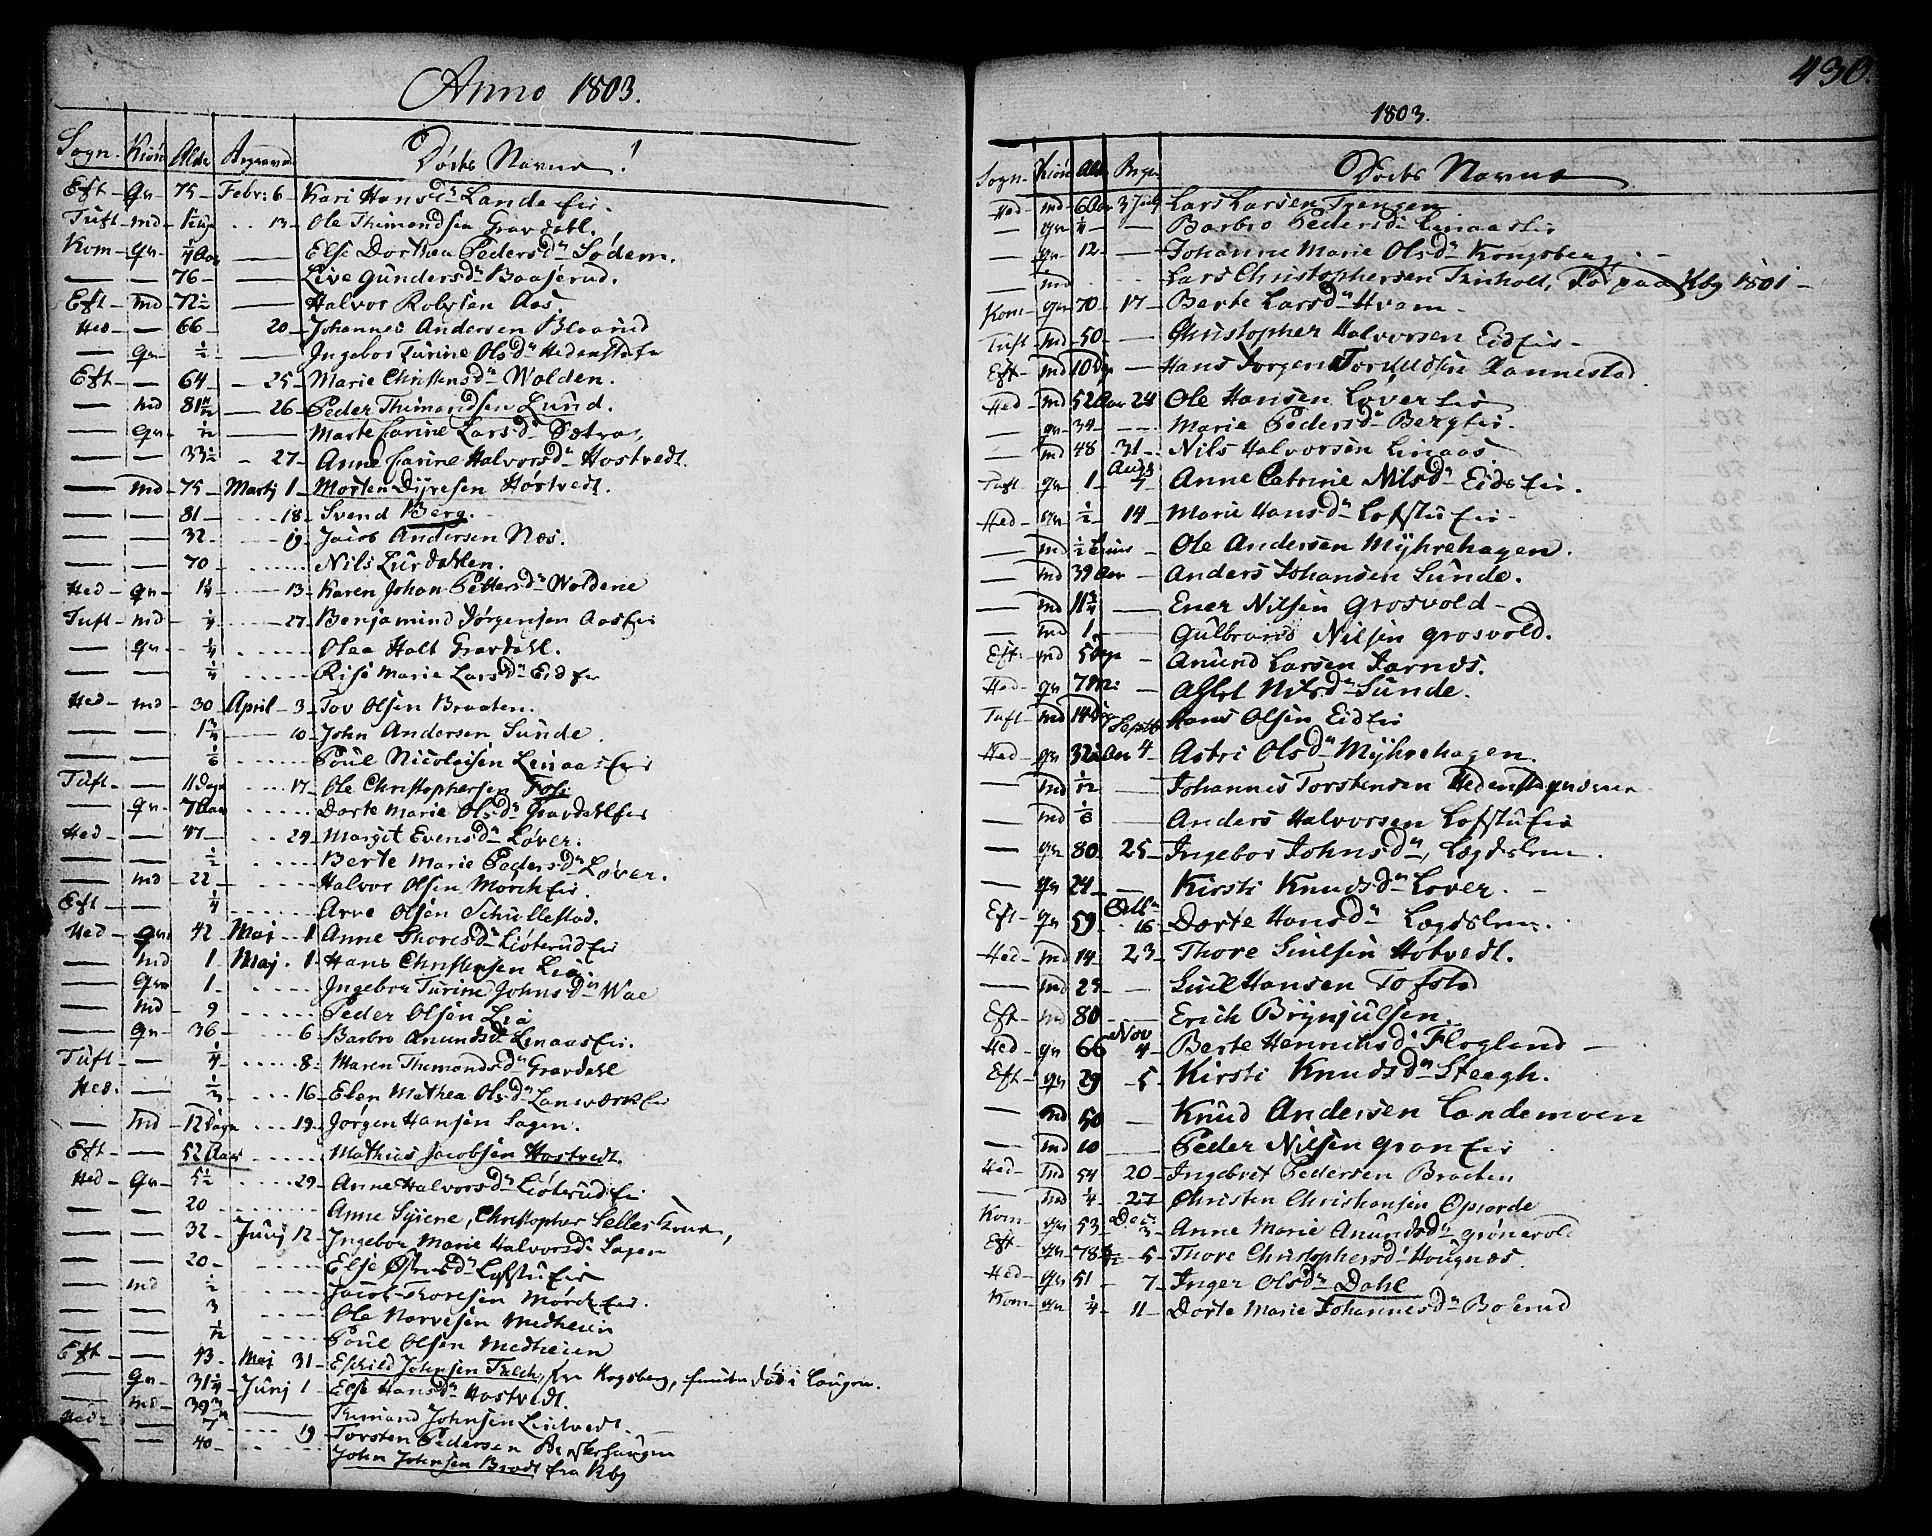 Anno 1803.
Sogn. Kiøn Alder Begravne Døds Navne
Eft - qv 75 - Febr: 6 - Kari Hansd: Lande Eie.
Tuft - md - 13 - Ole Thimandsen Gravdahl.
Kom - qv - 1/4 Aar — Else Dorthea Pedersd: Sødem.
— — 76 - — Live Gundersd: Baaserud.
Eft - md - 72 1/2 — Halvor Aas.
Hed - — 66 - 20 - Johannes Andersen Blaarud
— qv - 1/2 — Ingebor Turine Olsd:
Eft - — 64 - - 25 - Marie Christensd: Wolden.
— md - 81 11/12 — 26 - Peder Thimandsen Lund.
— qv - 1/12 — Marte Carine Larsd: Sætra,
— — 33 1/2 - 27 - Anne Carine Halvorsd: Hostvedt.
— md - 75 - Martj 1 - Morten Hostvedt.
— — 81 — 18 - Svend Berg.
— — 32 - 19 - Jacob Andersen Næs.
— — 70 Nils Lurdahlen.
Hed - qv - 1 1/4 13 - Karen Johan Pettersd: Woldene
Tuft - md - 1/4 27 - Benjamind Jørgensen Aas Eie
— qv - 1/4 Olea Halt Gravdahl.
— — 1/4 Rise Marie Larsd: Eid Eie
Hed - md - 30 April - 3 - Tov Olsen Braaten.
— — 1 3/4 10 - John Andersen Sunde.
— — 1/6 Poul Nicolaisen Linaas Eie
Tuft - — 11 Dage 17 - Ole Christophersen
— qv - 7 Aar Dorte Marie Olsd: Gravdahl Eie
Hed - — 47 - 24 - Margit Evensd: Løver.
— — 1/2 Berte Marie Pedersd: Løver.
— md - 22 - Halvor Olsen Mørch Eie.
Eft - — 1/4 Arve Olsen Schullestad.
Hed - qv 42 - Maj 1 Anne Thoresd: Liøterud Eie
— md 1 - Maj. 1 - Hans Christensen Lia.
— qv 1 - Ingebor Turine Johnsd: Wae
— md - 9 - Peder Olsen Lia
— qv - 36 - 6 - Barbro Anundsd: Linaas Eie.
Tuft - — 1/4 8 - Maren Thimandsd: Gravdahl
Hed. - — 16 - Elen Mathea Olsd: Eie
— md - 12 Dage 19 - Jørgen Hansen Sagen.
Eft - — 52 Aar Mathias Jacobsen Hostvedt.
Hed - qv - 5 1/2 29 - Anne Halvorsd: Liøterud Eie
— — 20 Anne Christopher
— — 32 - Junj 12 - Ingebor Marie Halvorsd: Sagen
— — 20 - Else Lofstu Eie
— md 1/2 Jacob Thoresen Mørch Eie.
— — 3 Ole Medheien
— — 1/12 Poul Olsen Medheien
Eft - — 43 - Maj 31 - Johnsen fra Kogsberg, funden død i Laugen.
— qv - 31 1/4 - Junj 1 - Else Hansd: Hostvedt.
— md - 39 — Thimand Johnsen
Hed - — 7 19 Torsten Pedersen
— — 40 - John Johnsen fra Kbg
430.
1803.
Sogn. Kiøn Ald Begr Døds Navne
Hed - md - 6 Aar 3 July Lars Larsen Tvengen
— qv - 1/4 — Barbro Pedersd: Linaas Eie
— qv 12 - — Johanne Marie Olsd: Kongsberg. -
— md Lars Christophersen Tinholt, Død paa Kbg 1801 -
Kom - qv 70 - 17 - Berte Larsd: Hvam -
Tuft - md - 50 - — Christopher Halvorsen Eid Eie -
Eft - md 10 Dge — Hans Jorgen Tannestad
Hed - md 52 Aar 24 Ole Hansen Løver Eie
— qv - 34 - — Marie Pedersd: Berg Eie.
— md 48 31 - Nils Halvorsen Linaas.
Tuft - qv - 1 - Aug: 7 Anne Catrine Nilsd: Eids Eie.
Hed - qv 1/2 14 - Marie Hansd: Lofstu Eie -
— md Ole Andersen Myhrehagen.
— md 39 Aar - Anders Johansen Sunde.
— md 11 3/4 — Ener Nilsen Grosvold -
— md 1 - — Gulbrand Nilsen Grosvold.
Eft - md 5 Dge - Anund Larsen Jarnæs.
Hed - qv 7 Md: - Aslet Nilsd: Sunde.
Tuft - md 14 Dge Hans Olsen Eid Eie
Hed - qv 32 Aar Septb 4 - Astri Olsd: Myhrehagen.
— md 1/12 — Johannes Torstensen
— md 1/6 — Anders Halvorsen Lofstu Eie
— qv 80 25 - Ingebor Johnsd:, Lægdslem.
— qv 24 - — Kirsti Knudsd: Løver. -
Eft - qv 59 - Octb: 16 Dorte Hansd: Lægdslem.
Hed - md 14 - 23 - Thore Giulsen Hotvedt.
— md 25 - — Giul Hansen Tofstad
Eft - md 80 - — Erich Brynjulsen.
Hed - qv 66 Nov 4 - Berte Henrichsd: Flogland —
Eft - qv 29 - 5 - Kirsti Knudsd: Steegh.
— md 50 — Knud Andersen Landemoen
— md 10 — Peder Nilsen Gran Eie
Hed - md 54 20 - Ingebret Pedersen Braaten
— md 1/4 27 Christen Christiansen Opsorde
Kom - qv 53 - Dec: 3 - Anne Marie Anundsd: Grønevold
Eft - qv - 78 5 - Thore Christophersd: Hougnæs.
Hed - qv 51 - 7 - Inger Olsd: Dahl
Kom - qv 1/4 - 11 - Dorte Marie Johannesd: Boserud